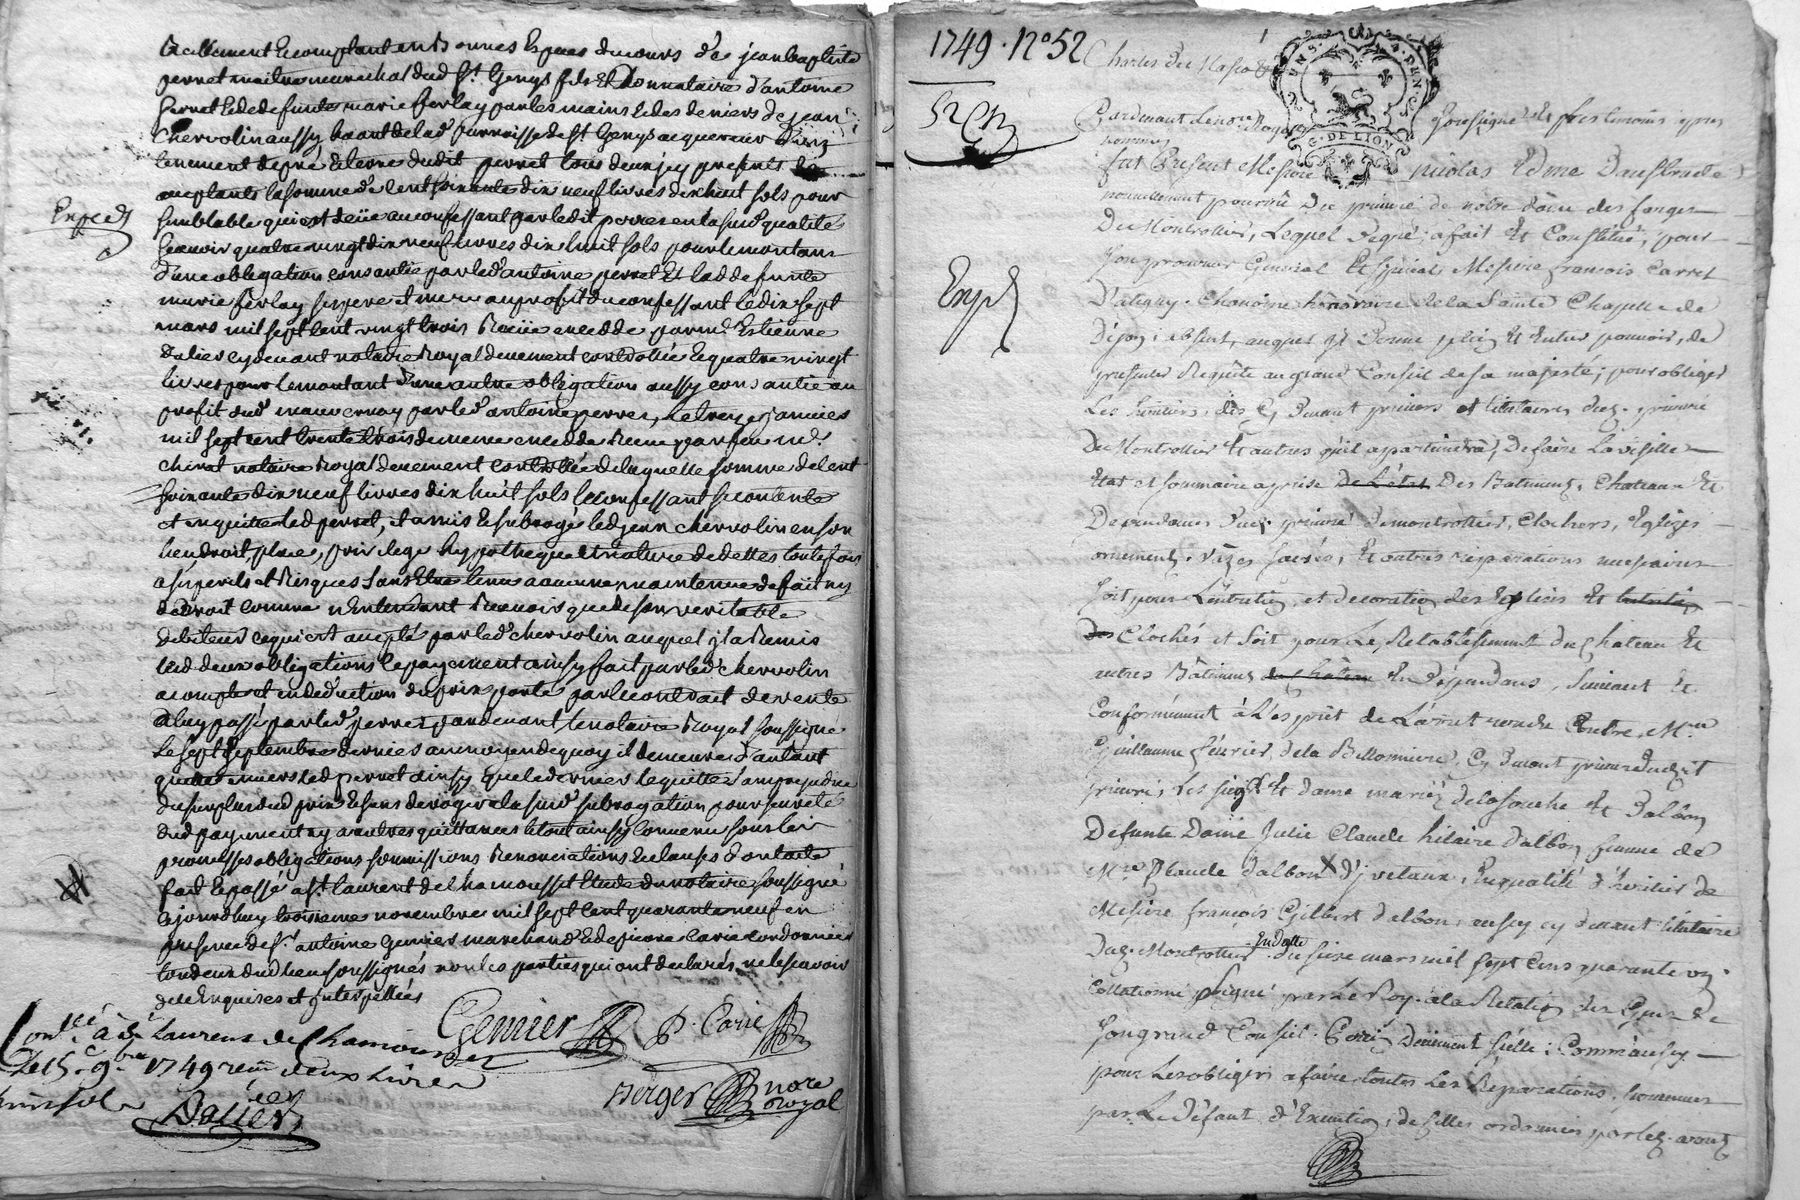 reallement et comptant en bonnes Espeses du cours d'és jean baptiste
perret maitre marechal dud St. Genys fils et donnataire d'antoine
perret et de defunte marie ferlay par les mains et des deniers de jean
Chervolin aussy hant de lad parroisse de st Genys acquereur d'un
tenement de pré et terre dudit perret tous deux jcy presents
acceptants la somme de cent soixante dix neuf livres dix huit sols pour
semblable qui est deüe au confessant par ledit perret en la susd qualité
Expedé
scavoir quatre vingt dix neuf livres dix huit sols pour le montant
d'une obligation consantie par led antoine perret Et lad defunte
marie ferlay ses pere et mere au profit du confessant le dix sept
mars mil sept cent vingt trois Reciie et cedde par me Estienne
dalier cy devant notaire Royal deuement controllée Et quatre vingt
livres pour le montant d'une autre obligation aussy consantie au
profit dud mauvernay par led antoine perret, Le treize janvier
mil sept cent trente trois de meme cnedde Receue par feu me.
chirat notaire Royal deuement controllée de laquelle somme de cent
soixante dix neuf livres dix huit sols le confessant se contente
et en quitte led perret, et a mis et subrogé led jean chervolin en son
lieu droit, place, privilege hypotheque et nature de dettes toutefois
a ses perils et Risques sans Etre tenu a aucune maintenue de fait ny
de droit comme n'Entendant Recevoir que de son veritable
debiteur ce qui est accepté par led chervolin auquel jl a Remis
lesd deux obligations le payement ainsy fait par led chervolin
a compte et en deduction du prix porté par le contrait de vente
a luy passé par led perret pardevant le notaire Royal soussigné
Le sept septembre dernier au moyen de quoy il demeure d'autant
quitte envers led perret ainsy que le dernier le quitte sans prejudice
du surplus dud prix et sans deroger a la susd subrogation pour sureté
dud payement ny a autres quittances le tout ainsy convenu sous les
promesses obligations soumissions Renonciations et clauses dont acte
fait et passé a st. laurent de chamousset Etude du notaire soussigné
cejourdhuy troisieme novembre mil sept cent quarante neuf en
presence de sr. antoine Genier marchand et de pierre Carie cordonnier
tondeur dud lieu soussignés non les parties qui ont declarés ne le scavoir
de ce Enquises et jnterpellées
Genier P. Carie
Conllé à St Laurens de Chamousset
Le 15e. 9bre 1749 recu deux Livres
Dalier
Berger nore royal
1749. No 52
UNS. LION
G. DE LION
Pardevant Le nore Royal soussigné et
fut Present Messire nicolas Edme Daustrude
nouvellement pourvû Du prieuré de notre Dame des forges
De Montrottier, Lequel de gré, a fait et Constitué, pour
Son procureur General Et special Messire françois Carrel
D'atigny, Chanoine honoraire de la Sainte Chapelle de
Dijon, absent, auquel jl Donne plein Et Entier pouvoir, de
Expé
presenter Requête au grand Conseil de sa majesté, pour obliger
Les heritiers, des Cy Devant prieurs et titulaires dud. prieuré
De Montrottier Et autres qu'il appartiendra, De faire La visitte
Etat et sommaire apprise de L'état Des Batiments, Chateau Et
Dependances dud. prieuré de montrottier, Clochers, Eglizes
ornements, vazes sacrés, Et autres reparations necessaires
soit pour L'entretien, et decoration des Eglises Et
des Clochés et soit pour Le Retablissement du chateau Et
autres Bâtiments du château En Dépendans, suivant Et
Conformément à L'esprit de L'arret rendu Contre, Me
Guillaume février, de la Bellonniere, Cy Devant prieur dudit
prieuré, Les sieur Et dame mariéz delasouche Et Dalbon
Defunte Dame Julie Claude hilaire dalbon femme de
Mre Claude dalbon d'yvetaux, En qualité d'heritier de
Messire françois Gilbert dalbon, aussy cy devant titulaire
Dud. Montrottier En datte du seize mars mil sept Cens quarante un
Collationné signé par Le Roy, a la Relation des Gens de
son grand Conseil. Corié Deuement scellé: Comme aussy
pour Les obliger a faire toutes Les Reparations,
par Le défaut d'Execution, de celles ordonnées par led. arrêt